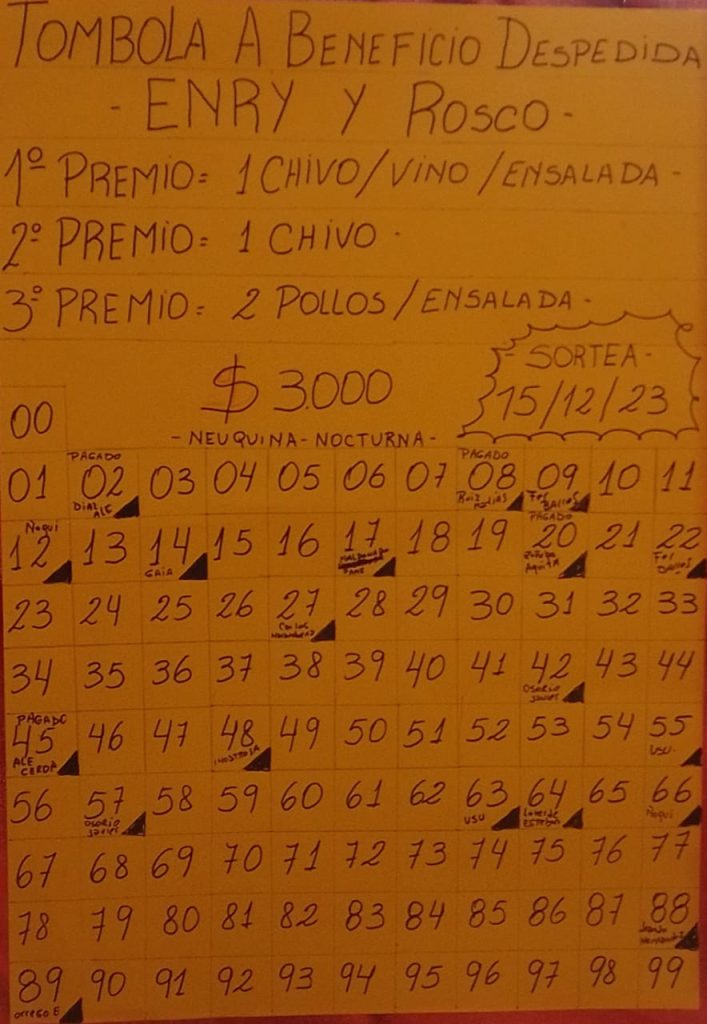 TOMBOLA A BENEFICIO DESPEDIDA
- ENRY Y ROSCO -
1º PREMIO= 1 CHIVO/VINO/ENSALADA -
2º PREMIO= 1 CHIVO -
3º PREMIO= 2 POLLOS/ENSALADA -
- SORTEA -
$ 3.000
15/12/23
- NEUQUINA - NOCTURNA -
00
PAGADO PAGADO
01 02 03 04 05 06 07 08 09 10 11
DIAZ ALE Ruiz
Ñoqui PAGADO
12 13 14 15 16 17 18 19 20 21 22
GAIA
23 24 25 26 27 28 29 30 31 32 33
Carlos
34 35 36 37 38 39 40 41 42 43 44
OSORIO JAVIER
PAGADO
45 46 47 48 49 50 51 52 53 54 55
ALE CERDA INOSTROSA USU
56 57 58 59 60 61 62 63 64 65 66
OSORIO JAVIER USU ESTEBAN Ñoqui
67 68 69 70 71 72 73 74 75 76 77
78 79 80 81 82 83 84 85 86 87 88
89 90 91 92 93 94 95 96 97 98 99
orrego E